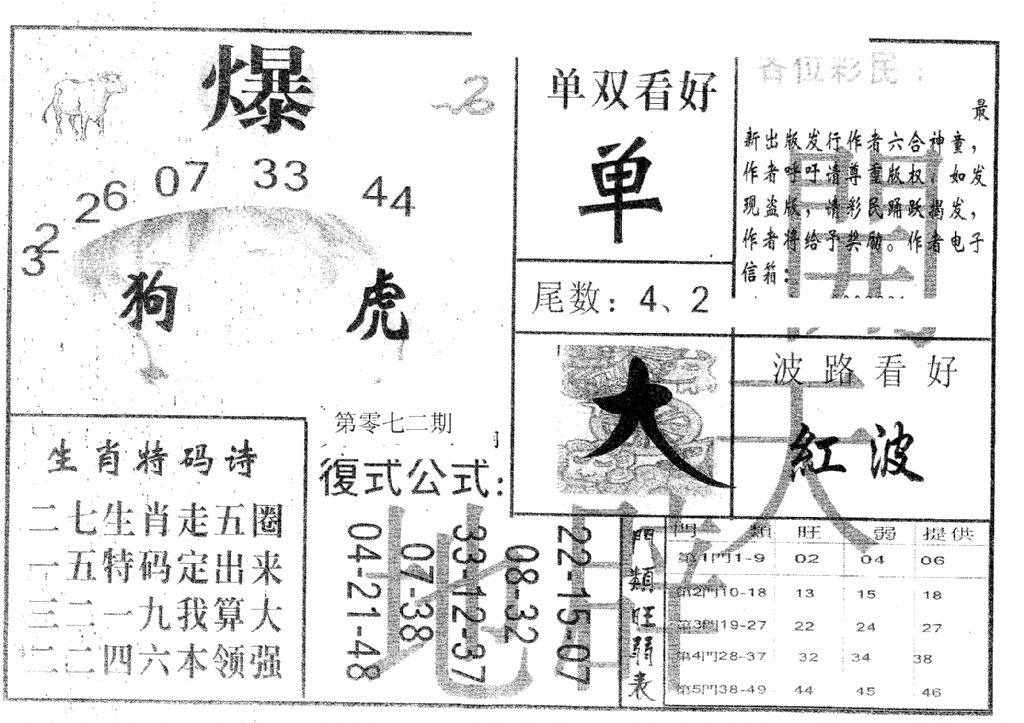 爆
32
26
07
33
44
狗 虎
生肖特码诗
二七生肖走五圈
一五特码定出来
三二一九我算大
二二四六本领强
第零七二期
復式公式:
04-21-48
07-38
33-12-37
08-32
22-15-07
单双看好
单
尾数: 4、2
大
各位彩民:
最
新出版发行作者六合神童,
作者呼吁请尊重版权。如发
现盗版,请彩民踊跃揭发,
作者将给予奖励。作者电子
信箱:
波路看好
紅波
門類旺弱表
門 類 旺 弱 提供
第1門1-9 02 04 06
第2門10-18 13 15 18
第3門19-27 22 24 27
第4門28-37 32 34 38
第5門38-49 44 45 46